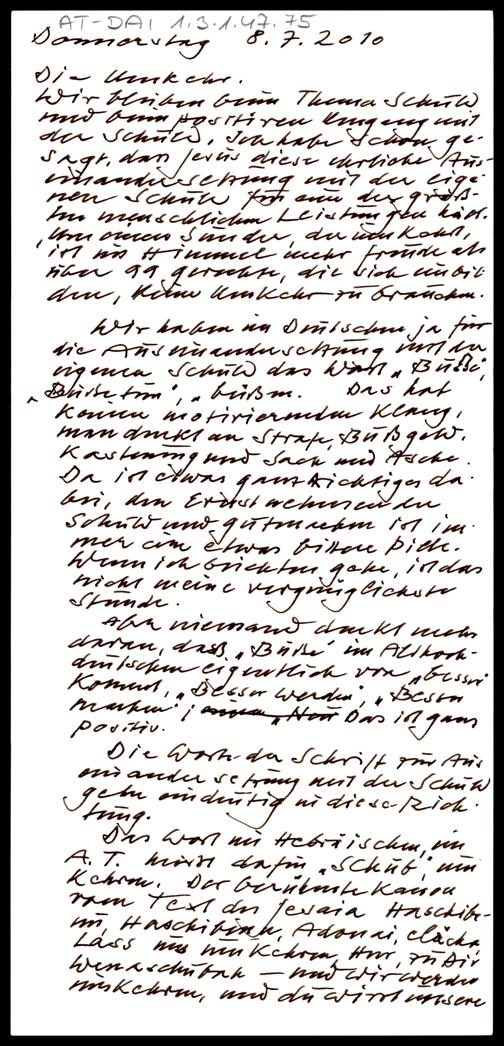 AT-DAI 1.3.1.47.75
Donnerstag 8.7.2010
Die Umkehr.
Wir bleiben beim Thema Schuld
und beim positiven Umgang mit
der Schuld. Ich habe schon ge-
sagt, dass Jesus diese ehrliche Aus-
einandersetzung mit der eige-
nen Schuld für eine der größ-
ten menschlichen Leistungen hält.
"Um einen Sünder, der umkehrt,
ist im Himmel mehr Freude als
über 99 gerechte, die sich einbil-
den, keine Umkehr zu brauchen.
Wir haben im Deutschen ja für
die Auseinandersetzung mit der
eigenen Schuld das Wort "Buße",
"Buße tun", "büßen. Das hat
keinen motivierenden Klang,
man denkt an Strafe, Bußgeld,
Kasteiung und Sack und Asche.
Da ist etwas ganz Richtiges da-
bei, den Ernst nehmen der
Schuld und gutmachen ist im-
mer eine etwas bittere Pille.
Wenn ich beichten gehe, ist das
nicht meine vergnüglichste
Stunde.
Aber niemand denkt mehr
daran, dass "Buße" im Althoch-
deutschen eigentlich von "besser"
kommt, "Besser werden", "Besser
machen"; Das ist ganz
positiv.
Die Worte der Schrift zur Aus
einandersetzung mit der Schuld
gehn eindeutig in diese Rich-
tung.
Das Wort im Hebräischen, im
A.T. heisst dafür "Schub", um
kehren. Der berühmte Kanon
vom Text des Jesaia Haschibe-
nu, Haschibenu, Adonai, elächa
Lass uns umkehren, Herr, zu Dir
wenaschubah – und wir werden
umkehren, und du wirst unsere